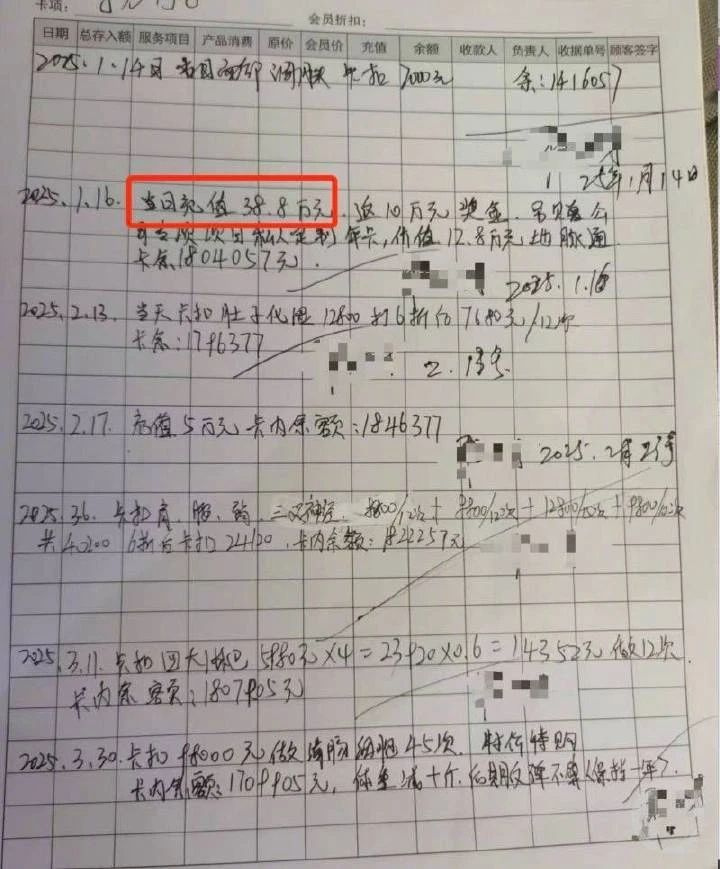 卡项:
会员折扣:
日期 总存入额 服务项目 产品消费 原价 会员价 充值 余额 收款人 负责人 收据单号 顾客签字
2025.1.14日 卡扣 7000元 余:1416057
25年1月14日
2025.1.16. 当日充值38.8万元.返10万元奖金.
年卡,价值12.8万元
卡余1804057元.
2025.1.16
2025.2.13. 当天卡扣肚子化湿12800打6折后7680元/12次
卡余:1796377
2.13号
2025.2.17. 充值5万元卡内余额:1846377
2025.2月
2025.3.6. 卡扣肩、腿、三叉神经.
共40200 6折后卡扣24120.卡内余额:1822257元
2025.3.11. 卡扣四大 5980元×4=23920×0.6=14352元 做12次.
卡内余额:1807905元
2025.3.30.卡扣98000元做 45次. 特价特购
卡内余额:1709905元,体重减十斤.后期反弹不要(保持一年).